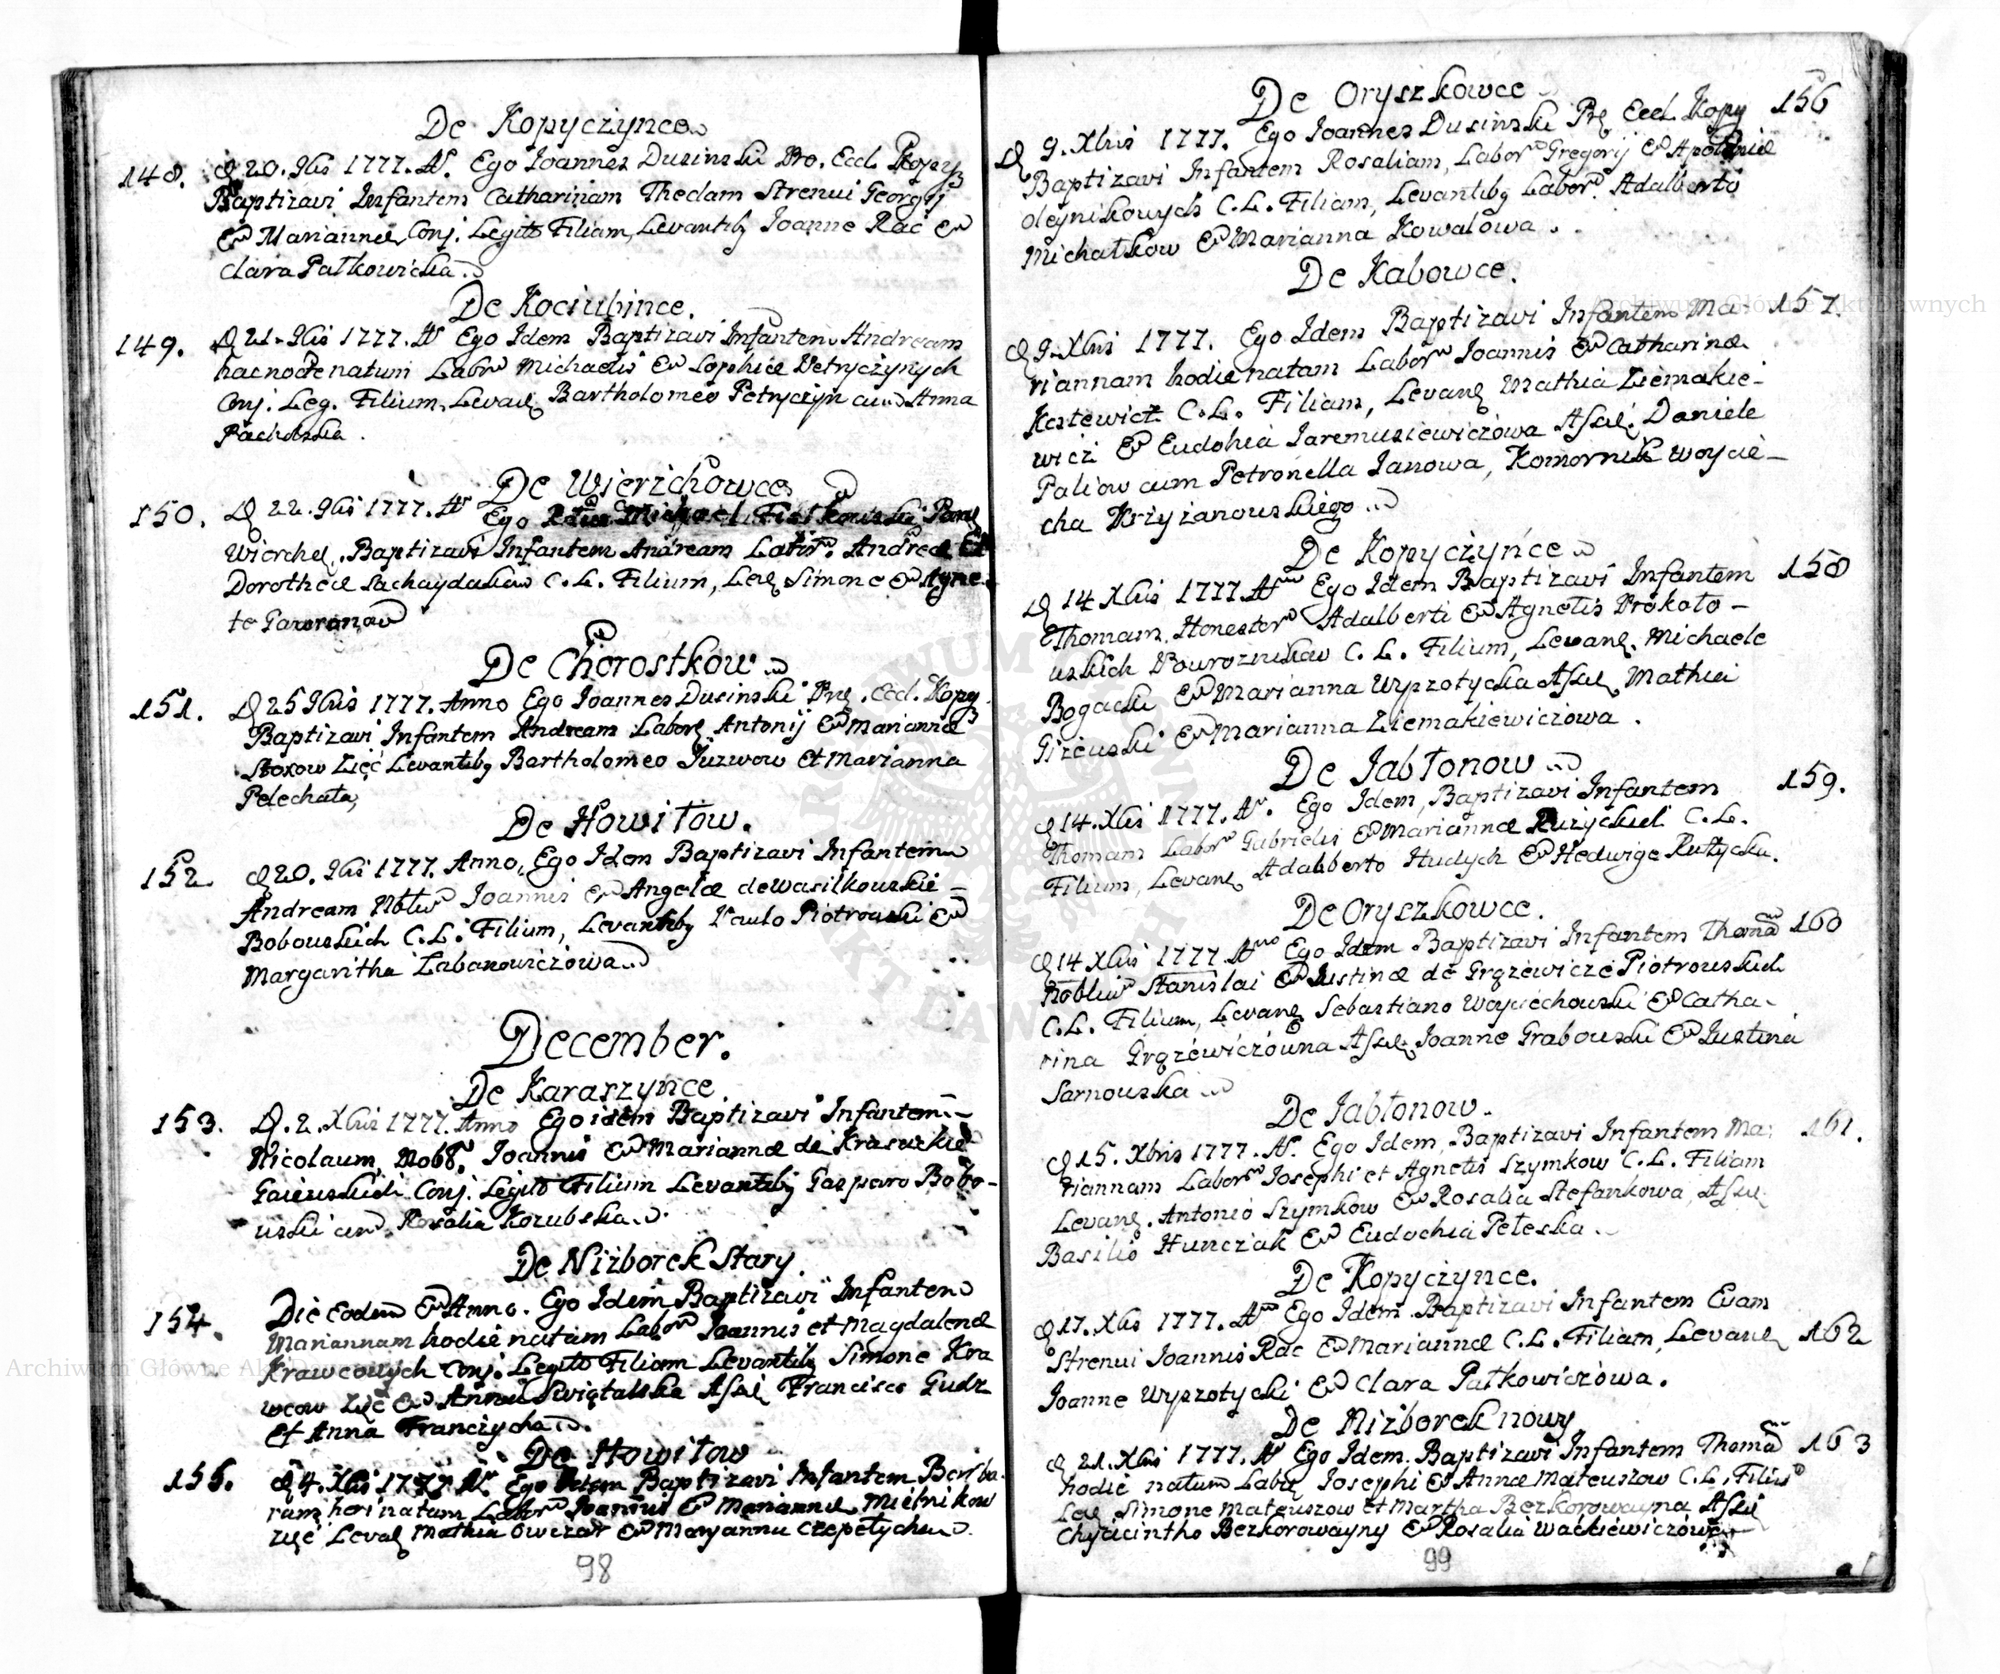 De Kopyczynce
148. D 20. 9bris 1777. A°. Ego Joannes Dusinski Pro. Eccl. Kopycz
Baptizavi Infantem Catharinam Theclam Strenui Georgij
& Mariannæ Conj. Legito Filiam, Levantibq Joanne Rac &
Clara Pałkowicka
De Kociubince.
149. D 21. 9bris 1777. A° Ego Idem Baptizavi Infantem Andream
hac nocte natum Labor Michaelis & Sophiæ Petryczynych
Conj. Leg. Filium, Levanq Bartholomeo Petryczyn cum Anna
Pacholska.
De Wierzchowce
150. D 22. 9bris 1777. A° Ego Michael Paroq
Wierchq. Baptizavi Infantem Andream Andreæ Et
Dorotheæ Sachaydaków C. L. Filium, Levq Simone & Agne-
te Gawronow
De Chorostkow
151. D 25 9bris 1777. Anno Ego Joannes Dusinski Prq. Eccl. Kopycz
Baptizavi Infantem Andream Laborq Antonij & Mariannæ
Zięć Levantibq Bartholomeo Juzwow et Marianna
Pelechata,
De Howiłow.
152. D 20. 9bris 1777. Anno, Ego Idem Baptizavi Infantem
Andream Nobłis Joannis & Angelæ de Wasilkowskie-
Bobowskich C. L. Filium, Levantibq Paulo Piotrowski &
Margaritha Labanowiczowa
December.
De Karaszynce.
153. D. 2. Xbris 1777. Anno Ego idem Baptizavi Infantem-
Nicolaum, Nobb. Joannis & Mariannæ de
Gaiewskich Conj. Legito Filium Levantibq Gasparo Bobo-
wski cum Rosalia Kozubska.
De Niżborek Stary.
154. Die Eodem & Anno. Ego Idem Baptizavi Infantem
Mariannam hodie natam Labor Joannis et Magdalenæ
Krawcowych Conj. Legito Filiam Levantibq Simone Kra
wcow Zięć & Anna Swiątalska Assq Francisco Gudz
Et Anna Franczycha.
De Howiłow
155. D 4. Xbris 1777. A° Ego Idem Baptizavi Infantem Barba-
ram heri natam Labor Joannis & Mariannæ Mielnikow
Zięć Levaq Mathia Owczar & Maryanna Czepełycha.
98
De Oryszkowce
D 9. Xbris 1777. Ego Joannes Dusinski Prq Eccl. Kopy 156
Baptizavi Infantem Rosaliam, Labor Gregorij & Apoloniæ
Oleynikowych C. L. Filiam, Levantibq Labor. Adalberto
Michałkow & Marianna Kowalowa.
De Kabowce.
D 9. Xbris 1777. Ego Idem Baptizavi Infantem Ma- 157.
riannam hodie natam Labor Joannis & Catharinæ
Kostewicz C. L. Filiam, Levanq Mathia Ziemakie-
wicz & Eudohia Jaremusiewiczowa Assq: Daniele
Paliow cum Petronella Janowa, Komornik Woycie-
cha Krzyżanowskiego
De Kopyczyńce
D 14 Xbris 1777 A° Ego Idem Baptizavi Infantem 158
Thomam Honestor Adalberti & Agnetis Prokoło-
wskich Powrozników C. L. Filium, Levanq. Michaele
Bogacki & Marianna Wyszotycka Assq Mathia
Giżewski & Marianna Ziemakiewiczowa.
De Jabłonow
D 14. Xbris 1777. A°. Ego Idem, Baptizavi Infantem 159.
Thomam Labor Gabrielis & Mariannæ Rużyckich C. L.
Filium, Levanq Adalberto Hudych & Hedwige Rużycka.
De Oryszkowce.
D 14 Xbris 1777. A° Ego Idem Baptizavi Infantem Thomã 160
Nobłiu Stanislai & Justinæ de Grązewicze Piotrowskich
C. L. Filium, Levanq Sebastiano Woyciechowski & Catha-
rina Grązewiczówna Assq Joanne Grabowski & Justina
Sarnowska
De Jabłonow.
D 15. Xbris 1777. A°. Ego Idem, Baptizavi Infantem Ma: 161.
riannam Labor Josephi et Agnetis Szymkow C. L. Filiam
Levanq. Antonio Szymkow & Rosalia Stefankowa, Assq.
Basilio Hunczak & Eudochia Peleska.
De Kopyczynce.
D 17. Xbris 1777. A° Ego Idem Baptizavi Infantem Evam
Strenui Joannis Rac & Mariannæ C. L. Filiam, Levanq 162
Joanne Wyszotycki & Clara Pałkowiczówa.
De Niżborek nowy
D 21. Xbris 1777. A° Ego Idem Baptizavi Infantem Thomã 163
hodie natum Labq Josephi & Annæ Mateuszow C. L. Filiu
Leq Simone Mateuszow et Martha Bezkorowayna Assq
Chyacintho Bezkorowayny & Rosalia Wackiewiczówa
99
Archiwum Główne Akt Dawnych